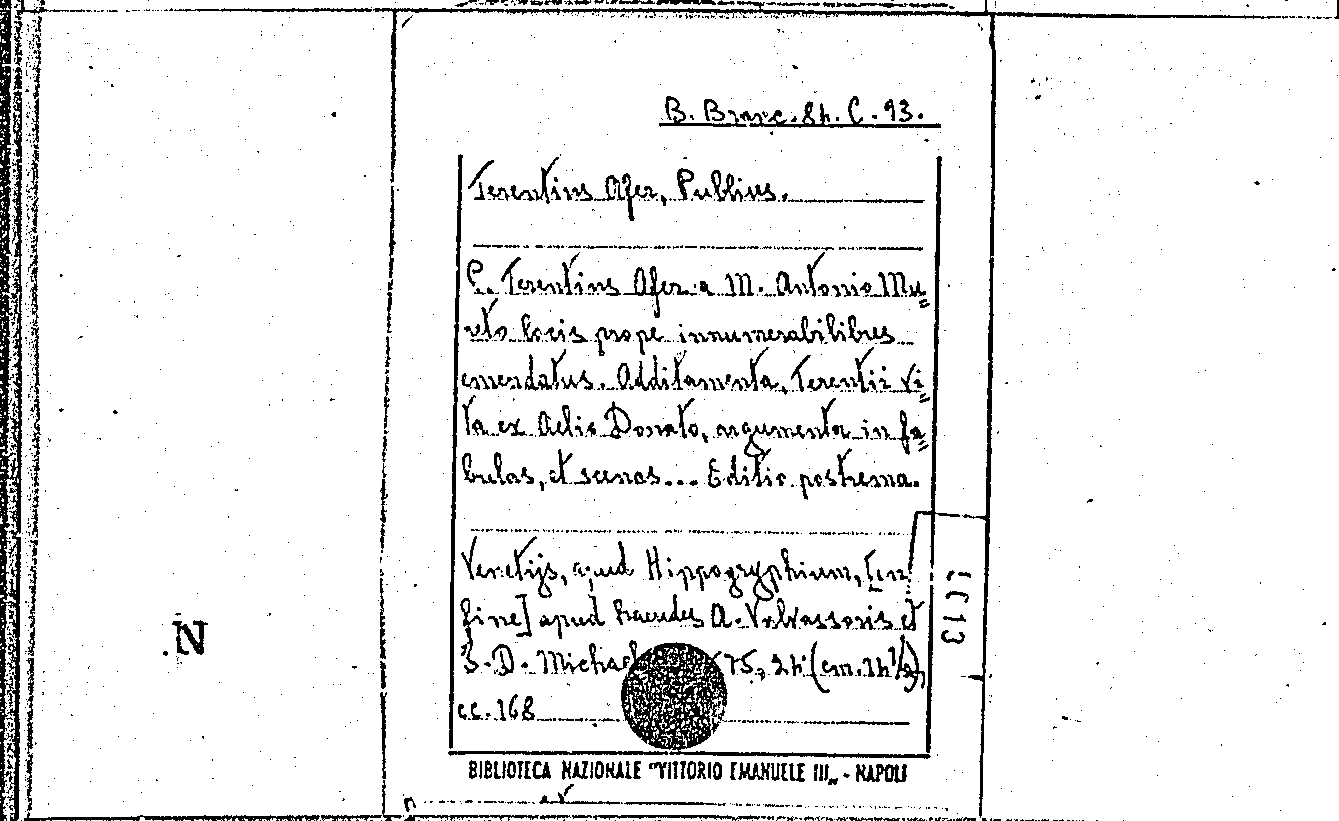 B. Branc. 8h. C. 93.
Terentius Afer, Publius.
P. Terentius Afer a M. Antonio Mu=
reto locis prope innumerabilibus
emendatus. Additamenta, Terentii vi=
ta ex Aelio Donato, argumenta in fa=
bulas, et scenas... Editio postrema.
Venetijs, apud Hippogryphium, [in
fine] apud haeredes A. Valvassoris et
D. Micha 75, 24° (cm. 14½),
cc. 168
BIBLIOTECA NAZIONALE "VITTORIO EMANUELE III„ - NAPOLI
.N